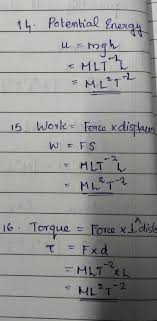 14. Potential Energy
u = mgh
= MLT⁻²L
= ML²T⁻²
15. Work = Force x displacem
W = FS
= MLT⁻²L
= ML²T⁻²
16. Torque = Force x ⊥ dist
τ = F x d
= MLT⁻² x L
= ML²T⁻²